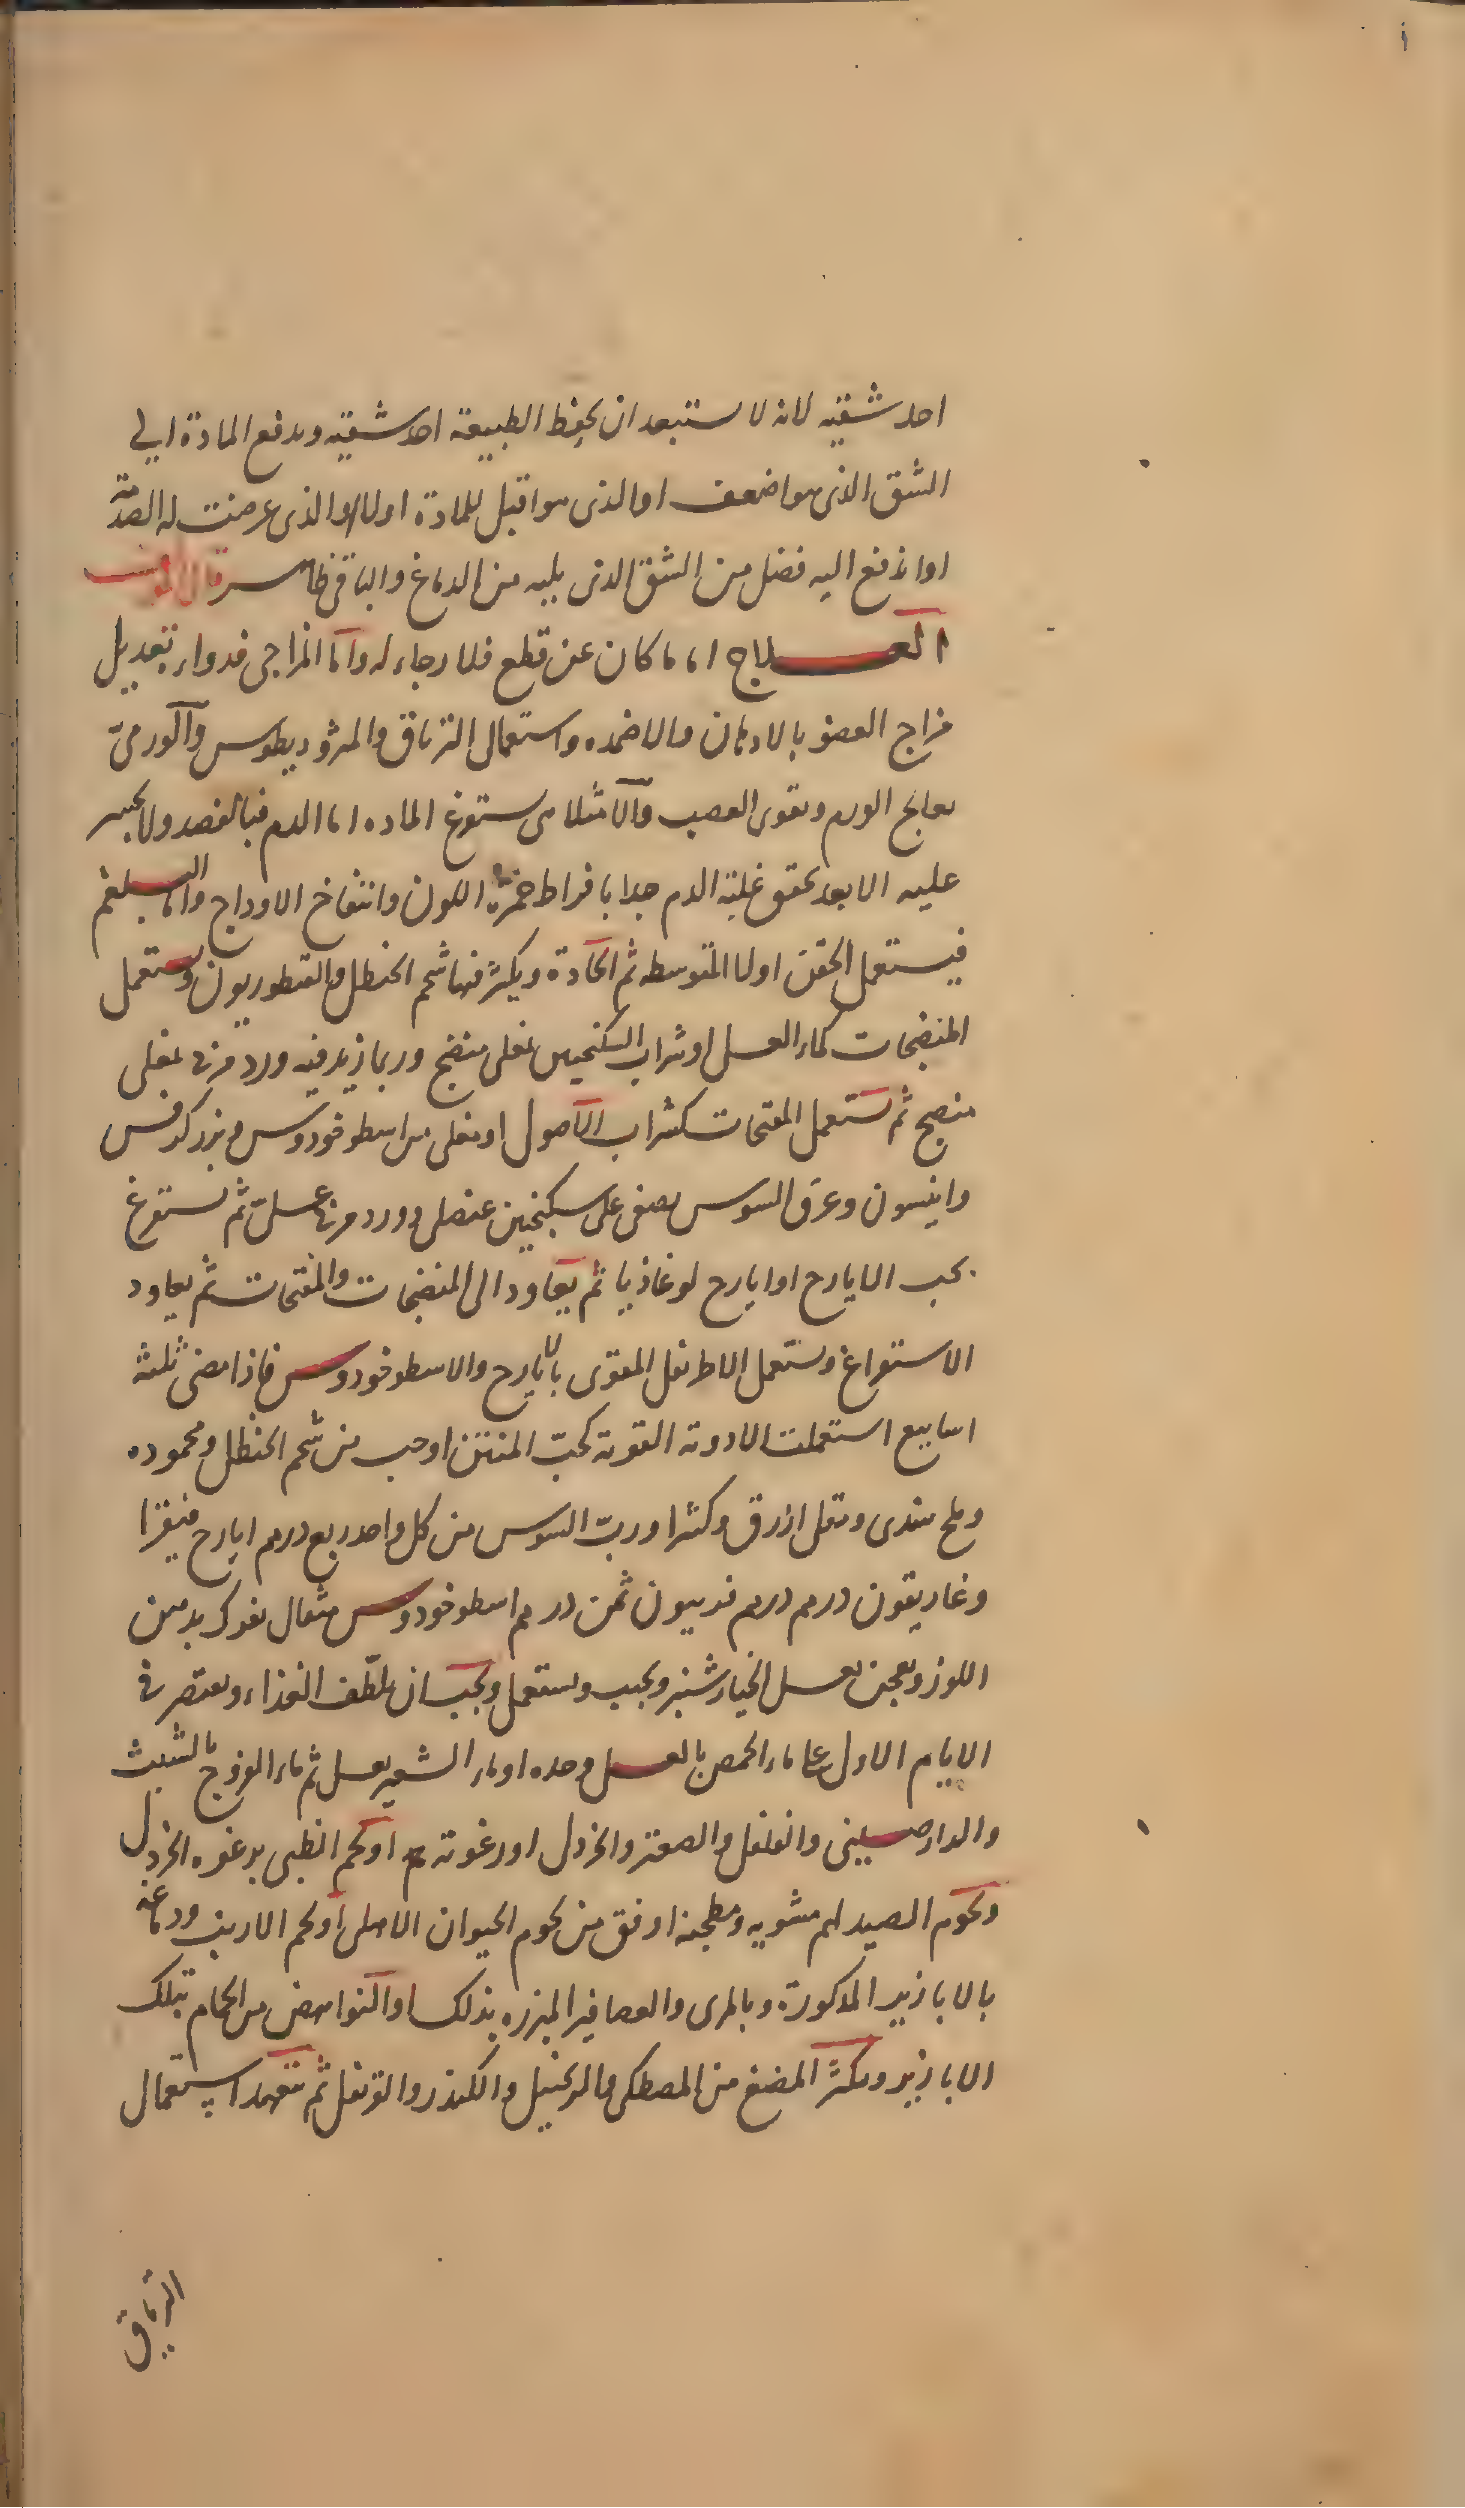 احد شقيه لانه لا ستبعد ان يحفظ الطبيعة احد شقيه ويدفع المادة الي
الشق الذى هو اضعف او الذى هو اقبل للمادة اولا او الذى عرضت له الصدمة
او اندفع اليه فضل من الشق الذى يليه من الدماغ والباقى ظاهر قال المؤلف
العلاج اما ما كان عن قطع فلا رجاء له واما المزاجى فدواءه بتعديل
مزاج العضو بالادهان والاضمده واستعمال الترياق والمثروديطوس والورمىّ
يعالج الورم ويقوى العصب والامتلاى يستفرغ الماده اما الدم فبالفصد ولا يجسر
عليه الا بعد تحقق غلبة الدم جدا بافراط حمرة اللون وانتفاخ الاوداج واما البلغم
فيستعمل الحقن اولا المتوسطه ثم الحادة ويكثر فيها شحم الحنظل والقنطوريون ويستعمل
المنضجات كماء العسل او شراب السكنجبين بمغلى منضج وربما زيد فيه ورد مربى بمغلى
منضج ثم يستعمل المفتحات كشراب الاصول او مغلى من اسطوخودوس وبزر كرفس
وانيسون وعرق السوس يصفى على سكنجبين عنصلى وورد مربى عسلىّ ثم يستفرغ
بحب الايارج او ايارج لوغاذيا ثم يعاود الى المنضجات والمفتحات ثم يعاود
الاستفراغ ويستعمل الاطريفل المقوى بالايارج والاسطوخودوس فاذا مضى ثلثة
اسابيع استعملت الادوية القوية كحبّ المنتن او حب من شحم الحنظل ومحموده
وملح هندى ومقل ازرق وكثيرا وربّ السوس من كل واحد ربع درهم ايارج فيقرا
وغاريقون درهم درهم فربيون ثمن درهم اسطوخودوس مثقال يفرك بدهن
اللوز ويعجن بعسل الخيارشنبر ويحبب ويستعمل ويجب ان يلطّف الغذاء ويقتصر فى
الايام الاول على ماء الحمص بالعسل وحده او ماء الشعير بعسل ثم ماء الفروج بالشبث
والدارصينى والفلفل والصعتر والخردل او رغوته او لحم الظبى برغوه الخردل
ولحوم الصيد لهم مشويه ومطجنه اوفق من لحوم الحيوان الاهلى او لحم الارنب ودماغه
بالابازير المذكورة وبالمرى والعصافير المبزره بذلك او النواهض من الحمام بتلك
الابازير ويكثر المضغ من المصطكى والزنجبيل والكندر والقرنفل ثم يتعهد استعمال
الترياق